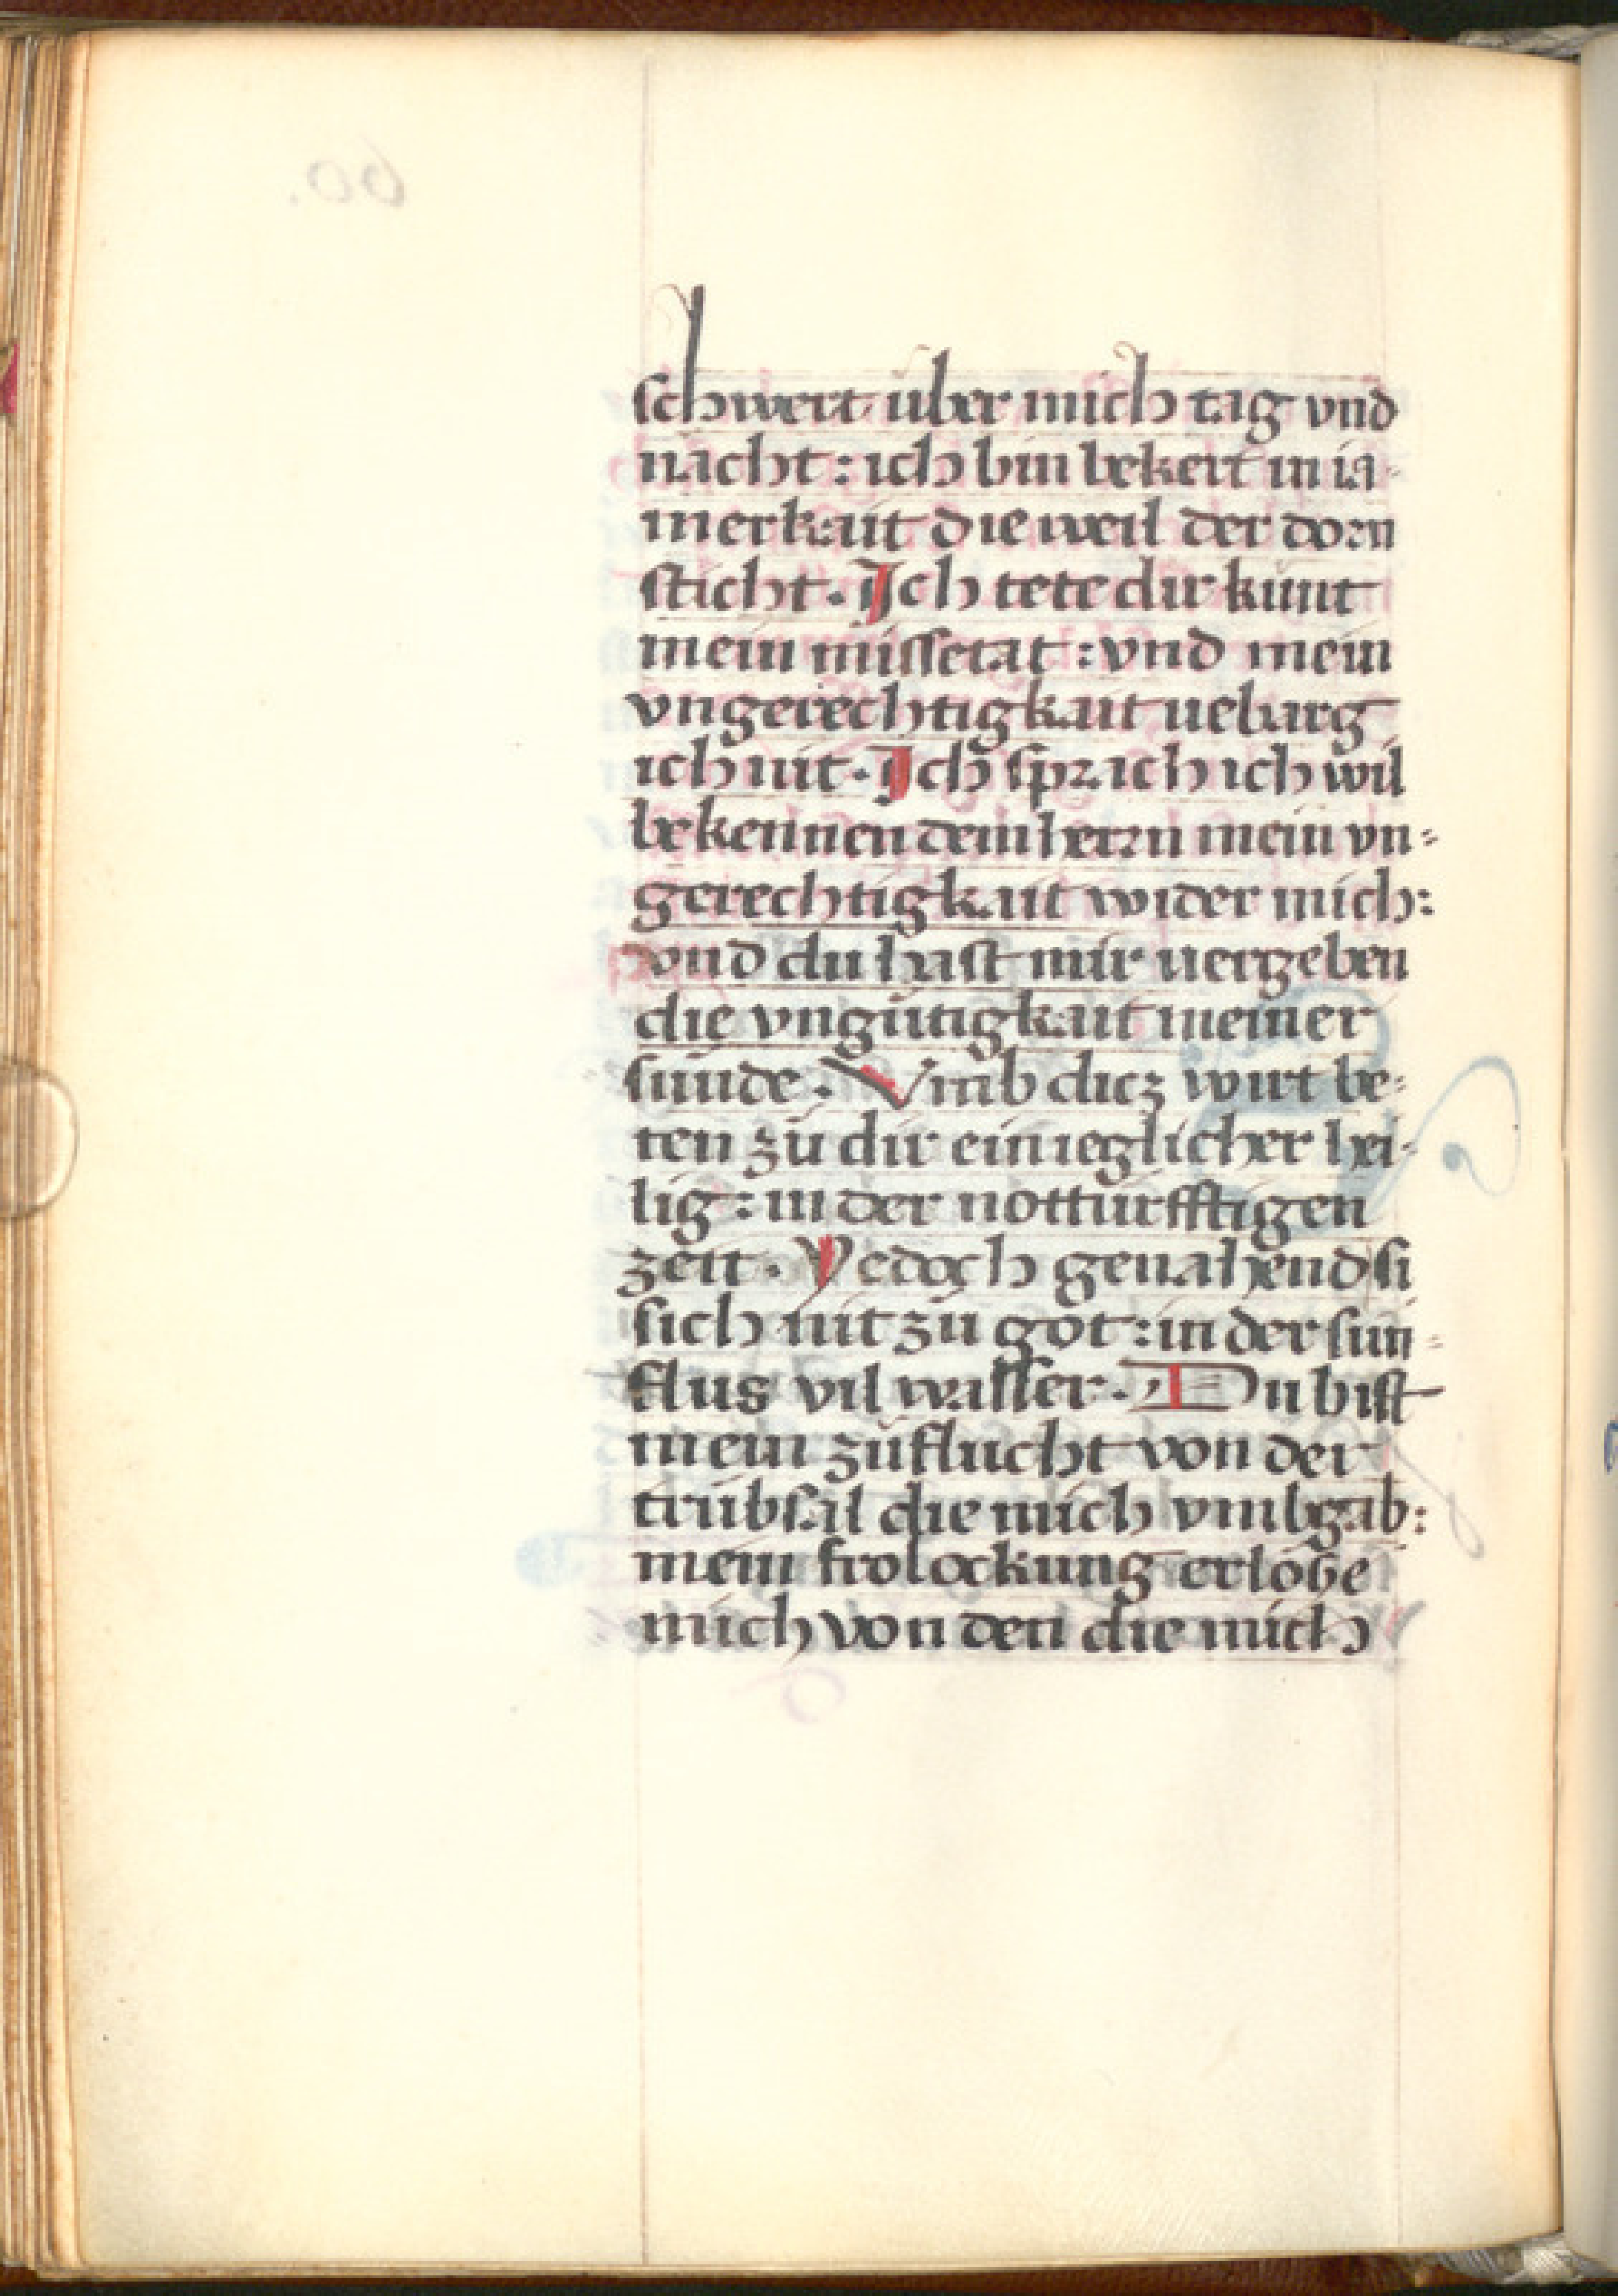 schwert über mich tag vnd
nacht : ich bin bekert in ia-
merkait die weil der dorn
sticht . Ich tete dir kunt
mein missetat : vnd mein
vngerechtigkait uebarg
ich nit . Ich sprach ich wil
bekennen dem herrn mein vn=
gerechtigkait wider mich :
vnd du hast mir uergeben
die vngütigkait meiner
sünde . Vmb dicz wirt be=
ten zů dir ein ieglicher hei-
lig : in der notturfftigen
zeit . Yedoch genahend si
sich nit zů got : in der sun=
flus vil wasser . Du bist
mein zůflucht von der
trübsal die mich vmbgab :
mein frolockung erlöse
mich von den die mich